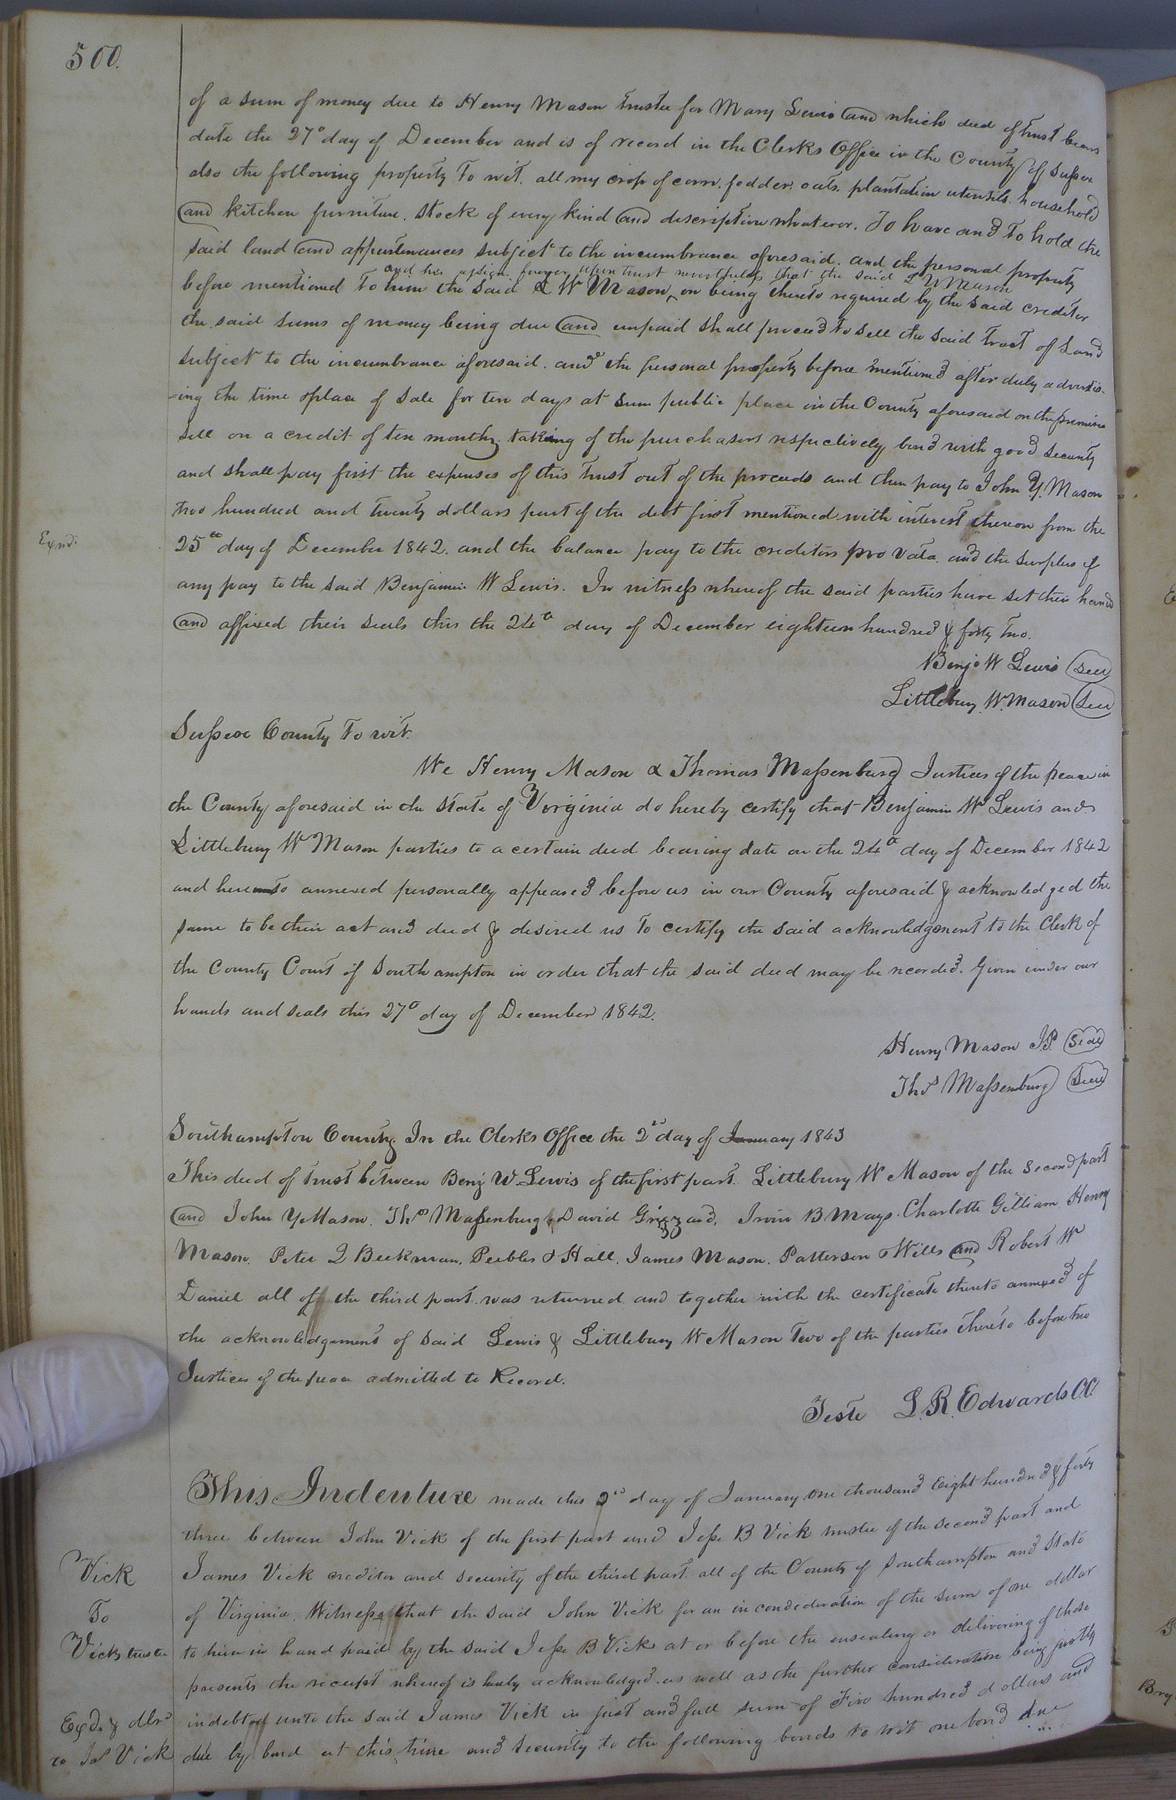 500.
of a sum of money due to Henry Mason trustee for Mary Lewis and which deed of trust bears
date the 27th day of December and is of record in the Clerks Office in the County of Sussex
also the following property To wit. all my crop of corn, fodder, oats, plantation utensils, household
and kitchen furniture, stock of every kind and description whatever. To have and to hold the
said land and appurtenances subject to the incumbrance aforesaid. and the personal property
and his assigns forever upon trust nevertheless that the said L W Mason
before mentioned to him the said L W Mason, on being thereto required by the said creditor
the said sums of money being due and unpaid shall proceed to sell the said tract of Land
subject to the incumbrance aforesaid. and the personal property before mentioned after duly advertis-
-ing the time & place of sale for ten days at sum public place in the County aforesaid on the premises
sell on a credit of ten months, taking of the purchasers respectively bond with good security
and shall pay first the expenses of this trust out of the proceeds and then pay to John Y. Mason
two hundred and twenty dollars part of the debt first mentioned with interest thereon from the
Exnd.
25th day of December 1842. and the balance pay to the creditors pro rata. and the surplus if
any pay to the said Benjamin W Lewis. In witness whereof the said parties have set their hands
and affixed their seals this the 24th day of December eighteen hundred & forty two.
Benj W Lewis seal
Littlebury W. Mason seal
Sussex County To wit.
We Henry Mason & Thomas Massenburg Justices of the peace in
the County aforesaid in the State of Virginia do hereby certify that Benjamin W Lewis and
Littlebury W Mason parties to a certain deed bearing date on the 24th day of December 1842
and hereunto annexed personally appeared before us in our County aforesaid & acknowledged the
same to be their act and deed & desired us to certify the said acknowledgement to the Clerk of
the County Court of Southampton in order that the said deed may be recorded. Given under our
hands and seals this 27th day of December 1842.
Henry Mason J.P. seal
Thos Massenburg seal
Southampton County. In the Clerks Office the 2nd day of January 1843
This deed of trust between Benj W Lewis of the first part. Littlebury W Mason of the second part
and John Y Mason, Thos Massenburg, David Grizzard, Irvin B Mays, Charlotte Gilliam Henry
Mason, Peter Q Beekman, Peebles & Hall, James Mason, Patterson & Wills and Robert W
Daniel all of the third part was returned and together with the certificate thereto annexed of
the acknowledgement of said Lewis & Littlebury W Mason Two of the parties thereto before two
Justices of the peace admitted to Record.
Teste L. R. Edwards C.C.
This Indenture made this 2nd day of January one thousand eight hundred & forty
three between John Vick of the first part and Jesse B Vick trustee of the second part and
Vick
James Vick creditor and security of the third part all of the County of Southampton and State
To
of Virginia. Witnesseth that the said John Vick for an in consideration of the sum of one dollar
Vick trustee
to him in hand paid by the said Jesse B Vick at or before the ensealing or delivering of these
presents the receipt whereof is hereby acknowledged. as well as the further consideration being justly
Exd. & dld
indebted unto the said James Vick in just and full sum of Five hundred dollars and
to Jas Vick
due by bond at this time and security to the following bonds to wit one bond due